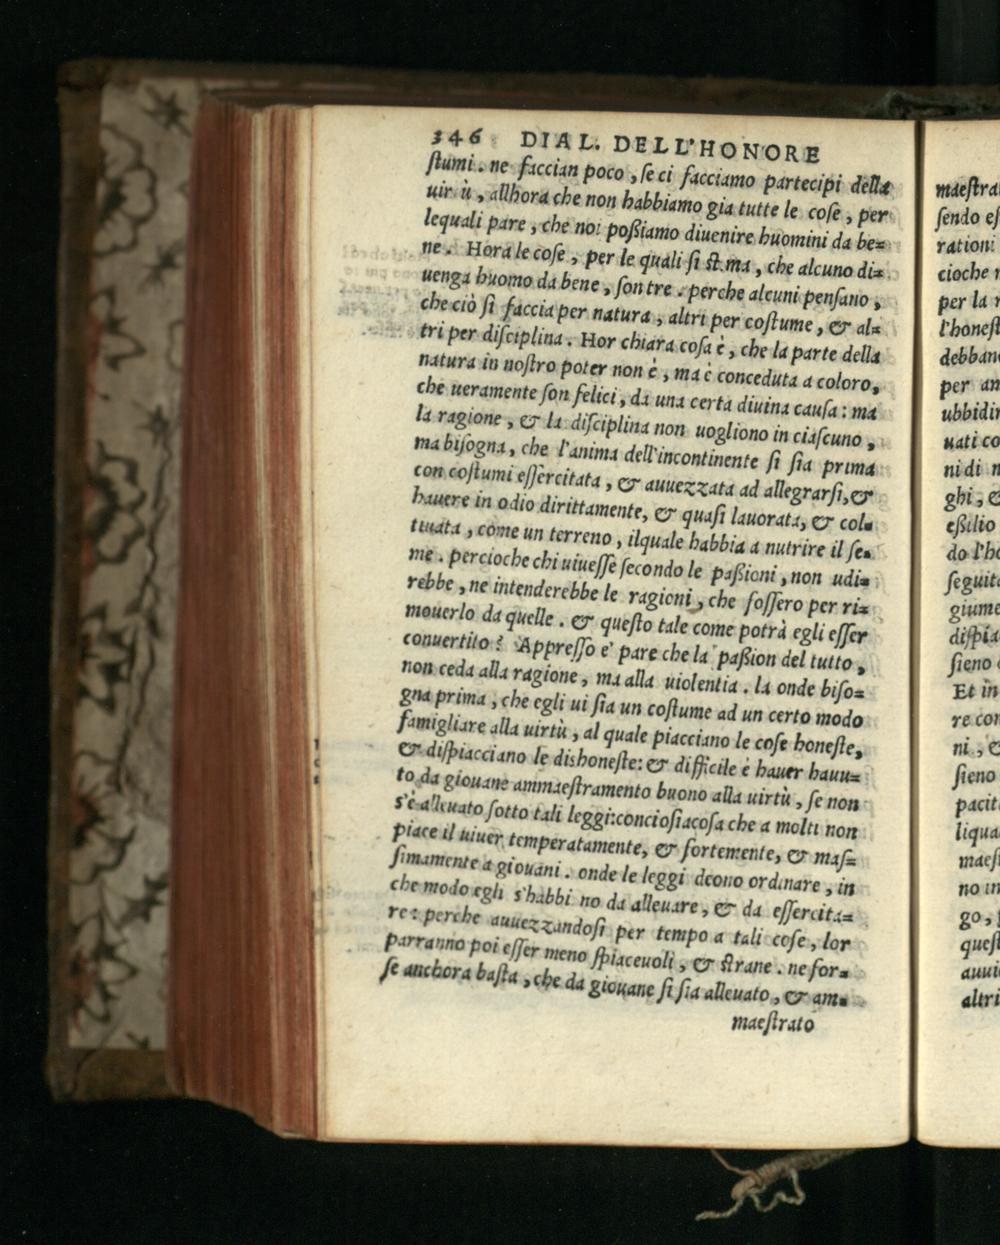 346 DIAL. DELL'HONORE
ſtumi. ne faccian poco, ſe ci facciamo partecipi della
uir ù, allhora che non habbiamo gia tutte le coſe, per
lequali pare, che noi poßiamo diuenire huomini da be=
ne. Hora le coſe, per le quali ſi ſt.ma, che alcuno di=
uenga huomo da bene, ſon tre. perche alcuni penſano,
che ciò ſi faccia per natura, altri per coſtume, & al=
tri per diſciplina. Hor chiara coſa è, che la parte della
natura in noſtro poter non è, ma è conceduta a coloro,
che ueramente ſon felici, da una certa diuina cauſa: ma
la ragione, & la diſciplina non uogliono in ciaſcuno,
ma biſogna, che l'anima dell'incontinente ſi ſia prima
con coſtumi eſſercitata, & auuezzata ad allegrarſi, &
hauere in odio dirittamente, & quaſi lauorata, & col=
tiuata, come un terreno, ilquale habbia a nutrire il ſe=
me. percioche chi uiueſſe ſecondo le paßioni, non udi=
rebbe, ne intenderebbe le ragioni, che foſſero per ri=
mouerlo da quelle. & queſto tale come potrà egli eſſer
conuertito? Appreſſo e' pare che la paßion del tutto,
non ceda alla ragione, ma alla uiolentia. la onde biſo=
gna prima, che egli ui ſia un coſtume ad un certo modo
famigliare alla uirtù, al quale piacciano le coſe honeſte,
& diſpiacciano le dishoneſte: & difficile è hauer hauu=
to da giouane ammaeſtramento buono alla uirtù, ſe non
s'è alleuato ſotto tali leggi: concioſiacoſa che a molti non
piace il uiuer temperatamente, & fortemente, & maſ=
ſimamente a giouani. onde le leggi deono ordinare, in
che modo egli s'habbi no da alleuare, & da eſſercita=
re: perche auuezzandoſi per tempo a tali coſe, lor
parranno poi eſſer meno ſpiaceuoli, & ſtrane. ne for=
ſe anchora baſta, che da giouane ſi ſia alleuato, & am=
maeſtrato
maeſtra
ſendo eſ
rationi
cioche
per la
l'honeſt
debban
per an
ubbidir
uati co
ni di
ghi, &
eßilio
do l'ho
ſeguita
giume
diſpia
ſieno
Et in
re con
ni, &
ſieno
pacit
liqua
maeſ
no in
go,
queſt
auui
altri